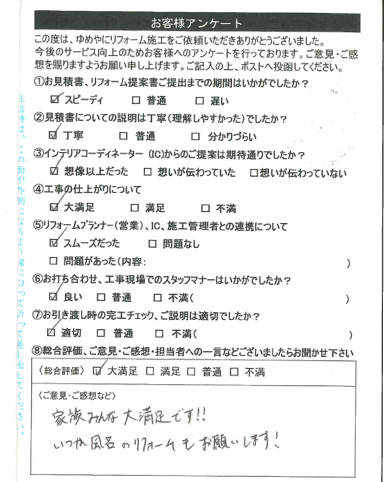 お客様アンケート
この度は、ゆめやにリフォーム施工をご依頼いただきありがとうございました。
今後のサービス向上のためお客様へのアンケートを行っております。ご意見・ご感
想を賜りますようお願い申し上げます。ご記入の上、ポストへ投函してください。
①お見積書、リフォーム提案書ご提出までの期間はいかがでしたか？
☑ スピーディ □ 普通 □ 遅い
②見積書についての説明は丁寧(理解しやすかった)でしたか？
☑ 丁寧 □ 普通 □ 分かりづらい
③インテリアコーディネーター (IC)からのご提案は期待通りでしたか？
☑ 想像以上だった □ 想いが伝わっていた □想いが伝わっていない
④工事の仕上がりについて
☑ 大満足 □ 満足 □ 不満
⑤リフォームプランナー(営業)、IC、施工管理者との連携について
☑ スムーズだった □ 問題なし
□ 問題があった(内容: )
⑥お打ち合わせ、工事現場でのスタッフマナーはいかがでしたか？
☑ 良い □ 普通 □ 不満( )
⑦お引き渡し時の完工チェック、ご説明は適切でしたか？
☑ 適切 □ 普通 □ 不満( )
⑧総合評価、ご意見・ご感想・担当者への一言などございましたらお聞かせ下さい
〈総合評価〉 ☑ 大満足 □ 満足 □ 普通 □ 不満
〈ご意見・ご感想など〉
家族みんな大満足です!!
いつか風呂のリフォームもお願いします!